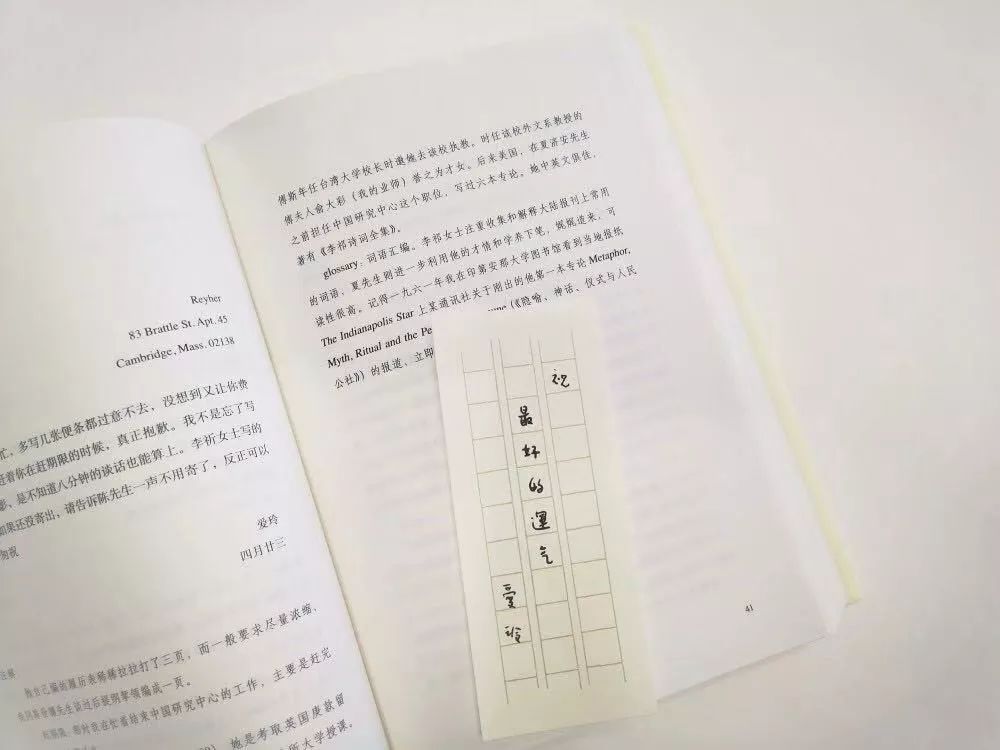 Reyher
83 Brattle St. Apt. 45
Cambridge, Mass. 02138
忙，多写几张便条都过意不去，没想到又让你费
赶着你在赶期限的时候，真正抱歉。我不是忘了写
影，是不知道八分钟的谈话也能算上。李祁女士写的
如果还没寄出，请告诉陈先生一声不用寄了，反正可以
匆祝
爱玲
四月廿三
注解
三页，而一般要求尽量浓缩，
编成一页。
即时我在忙着结束中国研究中心的工作，主要是赶完
她是考取英国庚款留
所大学授课。
傅斯年任台湾大学校长时邀她去该校执教。时任该校外文系教授的
傅夫人俞大彩（我的业师）誉之为才女。后来美国，在夏济安先生
之前担任中国研究中心这个职位，写过六本专论。她中英文俱佳，
著有《李祁诗词全集》。
glossary：词语汇编。李祁女士注重收集和解释大陆报刊上常用
的词语，夏先生则进一步利用他的才情和学养下笔，娓娓道来，可
读性很高。记得一九六一年我在印第安那大学图书馆看到当地报纸
The Indianapolis Star 上某通讯社关于刚出的他第一本专论 Metaphor,
Myth, Ritual and the Pe une（《隐喻、神话、仪式与人民
公社》）的报道，立即
41
祝
最好的運气
爱玲